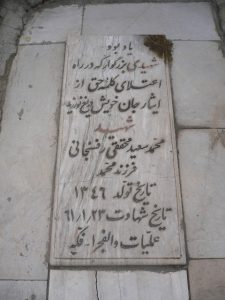 یادبود
شهیدی بزرگوار که در راه
اعتلای کلمه حق از
ایثار جان خویش دریغ نورزید
شهید
محمد سعید محققی رفسنجانی
فرزند محمد
تاریخ تولد ۱۳۴۶
تاریخ شهادت ۶۱/۱/۲۳
عملیات والفجر۱-فکه